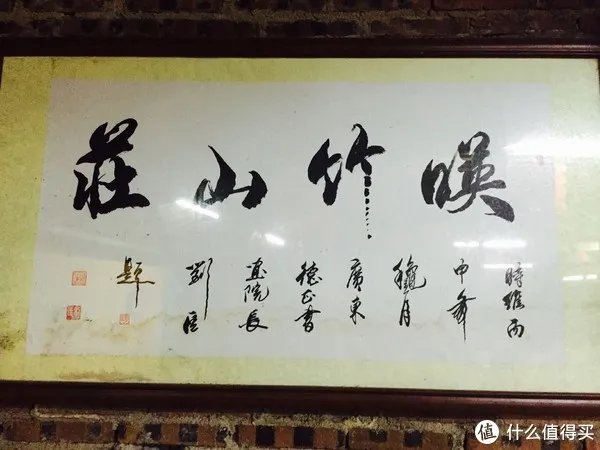 暎竹山莊
時維丙
申年
穐月
廣東
德正書
畫院長
劉
題
值 什么值得买